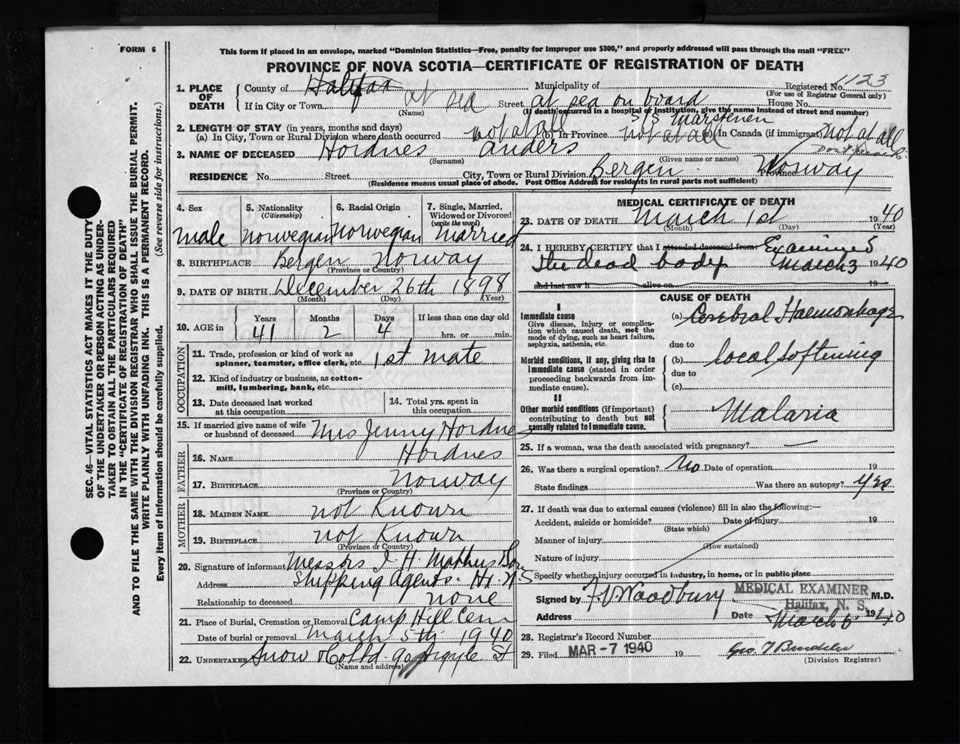 FORM 6
This form if placed in an envelope, marked "Dominion Statistics—Free, penalty for improper use $300," and properly addressed will pass through the mail "FREE"
PROVINCE OF NOVA SCOTIA—CERTIFICATE OF REGISTRATION OF DEATH
SEC. 46—VITAL STATISTICS ACT MAKES IT THE DUTY
OF THE UNDERTAKER OR PERSON ACTING AS UNDER-
TAKER TO OBTAIN ALL THE PARTICULARS REQUIRED
IN THE "CERTIFICATE OF REGISTRATION OF DEATH"
AND TO FILE THE SAME WITH THE DIVISION REGISTRAR WHO SHALL ISSUE THE BURIAL PERMIT.
WRITE PLAINLY WITH UNFADING INK. THIS IS A PERMANENT RECORD.
Every item of information should be carefully supplied. (See reverse side for instructions.)
1. PLACE OF DEATH
County of Halifax Municipality of Registered No. 1123
(For use of Registrar General only)
If in City or Town at sea Street at sea on board House No.
(Name) (If death occurred in a hospital or institution, give the name instead of street and number)
S/S
2. LENGTH OF STAY (in years, months and days)
(a) In City, Town or Rural Division where death occurred not at all In Province not at all (c) In Canada (if immigrant) not at all
3. NAME OF DECEASED Hordnes Anders
(Surname) (Given name or names)
RESIDENCE No. Street City, Town or Rural Division Bergen Province Norway
(Residence means usual place of abode. Post Office Address for residents in rural parts not sufficient)
4. Sex male
5. Nationality (Citizenship) Norwegian
6. Racial Origin Norwegian
7. Single, Married, Widowed or Divorced (write the word) Married
8. BIRTHPLACE Bergen Norway
(Province or Country)
9. DATE OF BIRTH December 26th 1898
(Month) (Day) (Year)
10. AGE in Years 41 Months 2 Days 4 If less than one day hrs. or min.
OCCUPATION
11. Trade, profession or kind of work as spinner, teamster, office clerk, etc. 1st mate
12. Kind of industry or business, as cotton-mill, lumbering, bank, etc.
13. Date deceased last worked at this occupation
14. Total yrs. spent in this occupation
15. If married give name of wife or husband of deceased Mrs Jenny Hordnes
FATHER
16. NAME Hordnes
17. BIRTHPLACE Norway
(Province or Country)
MOTHER
18. MAIDEN NAME not Known
19. BIRTHPLACE not Known
(Province or Country)
20. Signature of informant Messrs I. H. Mathers Son
Address Shipping Agents. Hx. N S
Relationship to deceased none
21. Place of Burial, Cremation or Removal Camp Hill Cem
Date of burial or removal March 5th 1940
22. UNDERTAKER Snow & Co Ltd. 90 Argyle St
(Name and address)
MEDICAL CERTIFICATE OF DEATH
23. DATE OF DEATH March 1st 1940
(Month) (Day) (Year)
24. I HEREBY CERTIFY that I attended deceased from Examined
the dead body March 3 1940
and last saw h alive on 19
CAUSE OF DEATH
I
Immediate cause
Give disease, injury or complication which caused death, not the mode of dying, such as heart failure, asphyxia, asthenia, etc.
(a) Cerebral Haemorrhage
due to
Morbid conditions, if any, giving rise to immediate cause (stated in order proceeding backwards from immediate cause).
(b) local softening
due to
(c)
II
Other morbid conditions (if important) contributing to death but not causally related to immediate cause.
Malaria
25. If a woman, was the death associated with pregnancy?
26. Was there a surgical operation? No Date of operation 19
State findings Was there an autopsy? Yes
27. If death was due to external causes (violence) fill in also the following:—
Accident, suicide or homicide? Date of injury 19
(State which)
Manner of injury
(How sustained)
Nature of injury
Specify whether injury occurred in industry, in home, or in public place
Signed by F. V. Woodbury M.D.
MEDICAL EXAMINER
Halifax, N. S.
Address Date March 6 1940
28. Registrar's Record Number
29. Filed MAR - 7 1940 19
(Division Registrar)